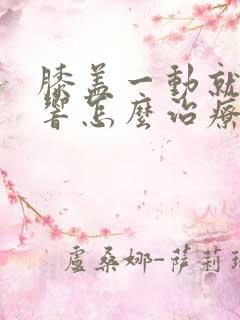 膝盖一動就
響怎麼治療
盧桑娜-萨莉